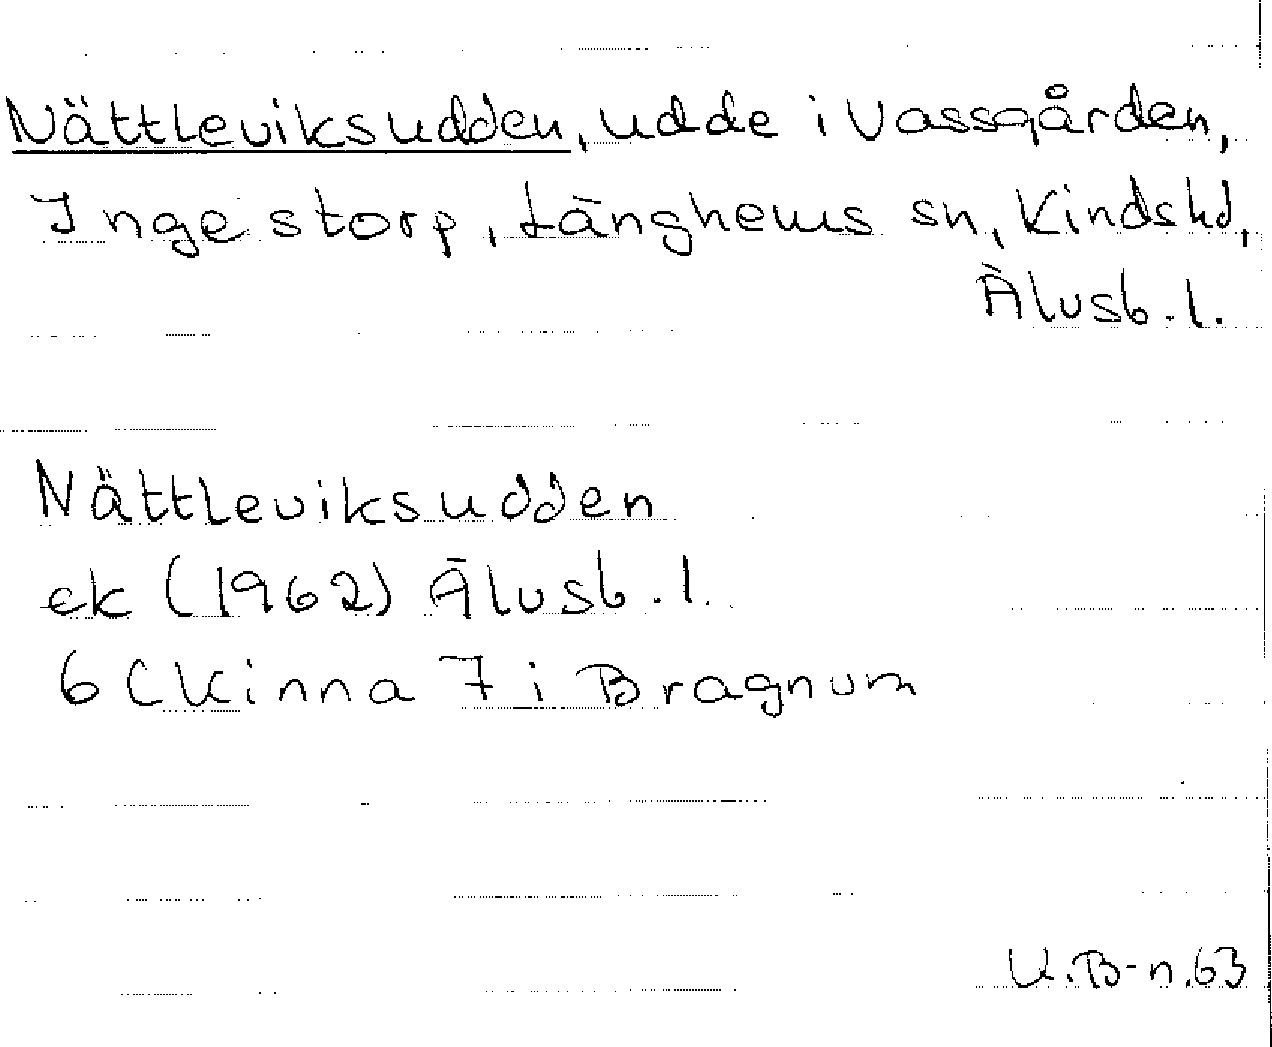 Nättleviksudden, udde i Vassgården,
Ingestorp, Länghems sn, Kinds hd,
Älvsb. l.
Nättleviksudden
ek (1962) Älvsb. l.
6 C Kinna 7 i Bragnum
K.B-n.63